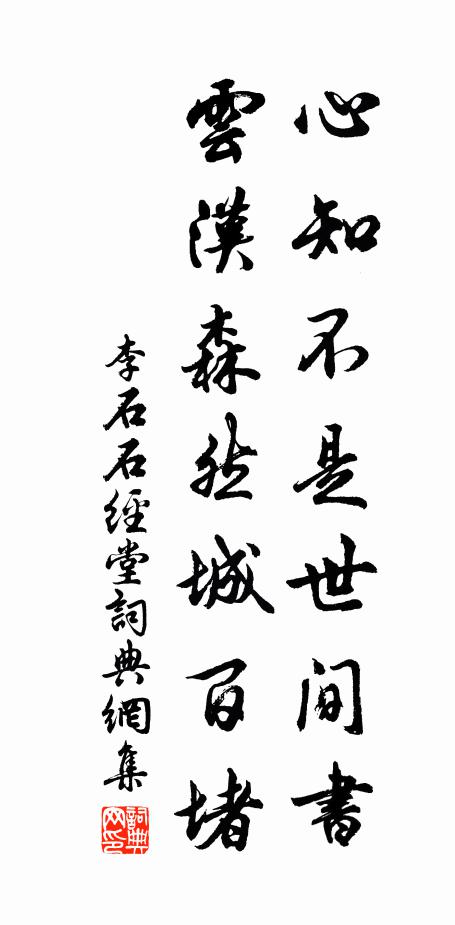 心知不是世间書
雲漢森然城百堵
李石石經堂詞典網集
詞典网印